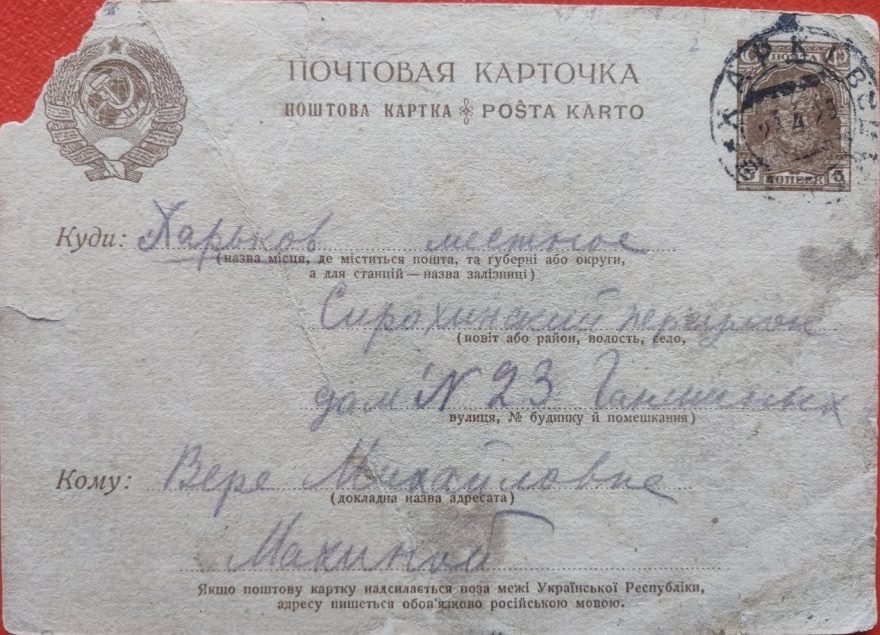 ПОЧТОВАЯ КАРТОЧКА
ПОШТОВА КАРТКА POŜTA KARTO
ПОЧТА
ХАРКІВ
23 4 29
КОПЕЕК
Куди: Харьков местное
(назва місця, де міститься пошта, та губерні або округи,
а для станцій — назва залізниці)
Сирохинский
(повіт або район, волость, село,
дом N 23
вулиця, № будинку й помешкания)
Кому: Вере Михайловне
(докладна назва адресата)
Макиной
Якщо поштову картку надсилається поза межі Української Республіки,
адресу пишеться обов'язково російською мовою.